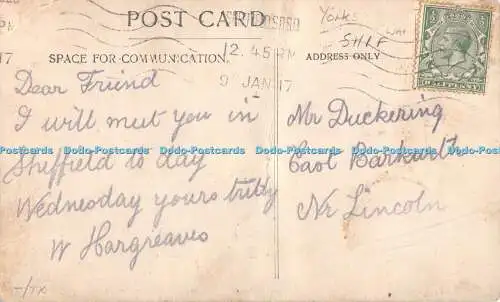 POST CARD
SPACE FOR COMMUNICATION.
ADDRESS ONLY
12.45 PM
9 JAN 17
Yorks
SHEF
Dear Friend
I will meet you in
Sheffield to day
Wednesday yours truly
W Hargreaves
Mr Duckering
East Barkwith
Nr Lincoln
HALFPENNY
Dodo-Postcards Dodo-Postcards Dodo-Postcards Dodo-Postcards Dodo-Postcards